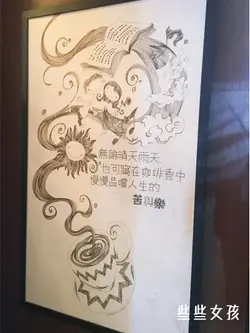 無論晴天雨天
也可窩在咖啡香中
慢慢品嚐人生的
苦與樂
些些女孩